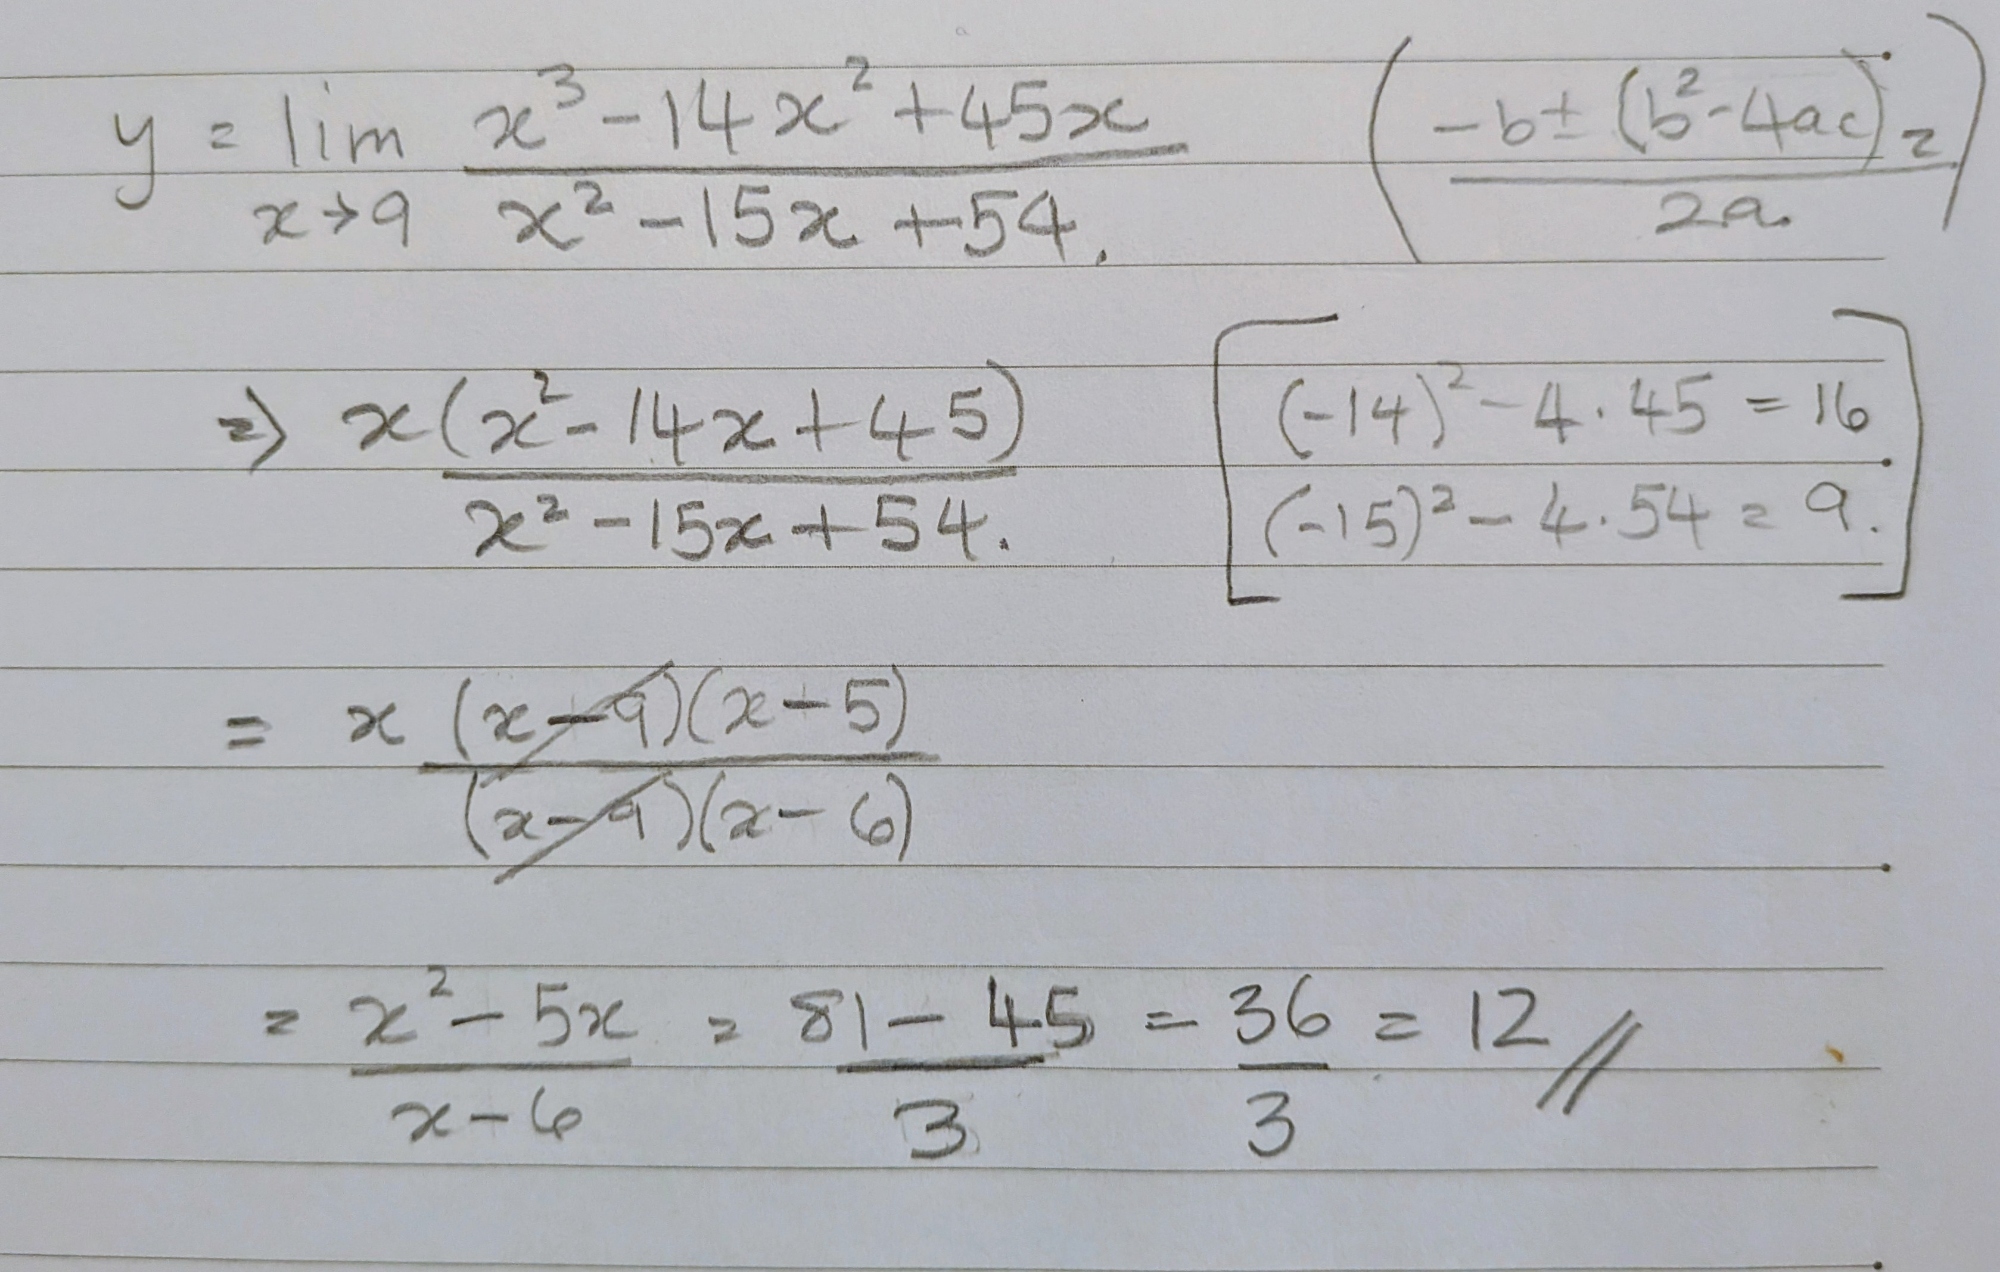 y = lim x→9 (x³ - 14x² + 45x) / (x² - 15x + 54.)
( (-b ± (b² - 4ac)2) / 2a. )
⇒ x(x² - 14x + 45) / (x² - 15x + 54.)
[ (-14)² - 4 · 45 = 16
(-15)² - 4 · 54 = 9. ]
= x (x - 9)(x - 5) / (x - 9)(x - 6)
= (x² - 5x) / (x - 6) = (81 - 45) / 3 = 36 / 3 = 12 //